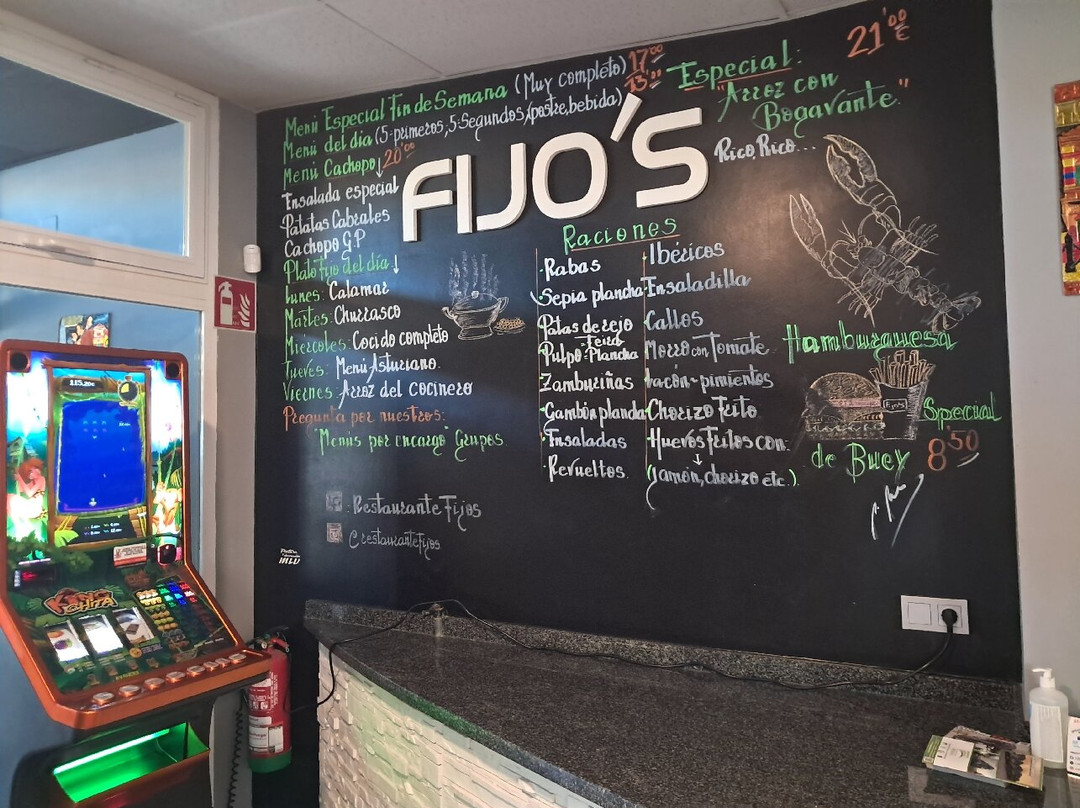 Menú Especial Fin de Semana (Muy completo) 17'00
Menú del día (5-primeros, 5-Segundos, (postre, bebida) 13'00
Menú Cachopo↓ 20'00
Ensalada especial
Patatas Cabrales
Cachopo G.P
Plato Fijo del día ↓
Lunes: Calamar
Martes: Churrasco
Miércoles: Cocido completo
Jueves: Menú Asturiano.
Viernes: Arroz del cocinero
Pregunta por nuestros:
"Menús por encargo" Grupos
: Restaurante Fijos
@restaurantefijos
FIJO'S
Especial: 21'00 €
"Arroz con
Bogavante."
Rico, Rico...
Raciones
·Rabas
·Sepia plancha
·Patas de rejo
·Pulpo-Feira
Plancha
·Zamburiñas
·Gambón plancha
·Ensaladas
·Revueltos.
Ibéricos
Ensaladilla
Callos
Morro con Tomate
Lacón-pimientos
Chorizo Frito
Huevos Fritos con:
↓
(jamón, chorizo etc.).
Hamburguesa
Special
de Buey 8'50
Fijo's
KING
CHITA